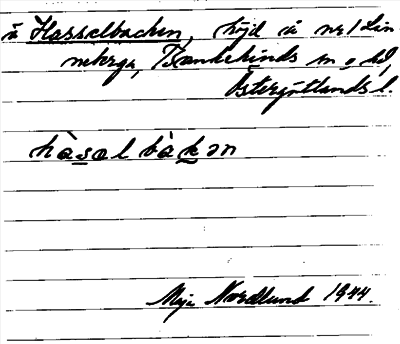 å Hasselbacken, höjd å nr 1 Lin
neberga, Bankekinds sn o hd,
Östergötlands l.
hàsəlbàkən
Nordlund 1944.